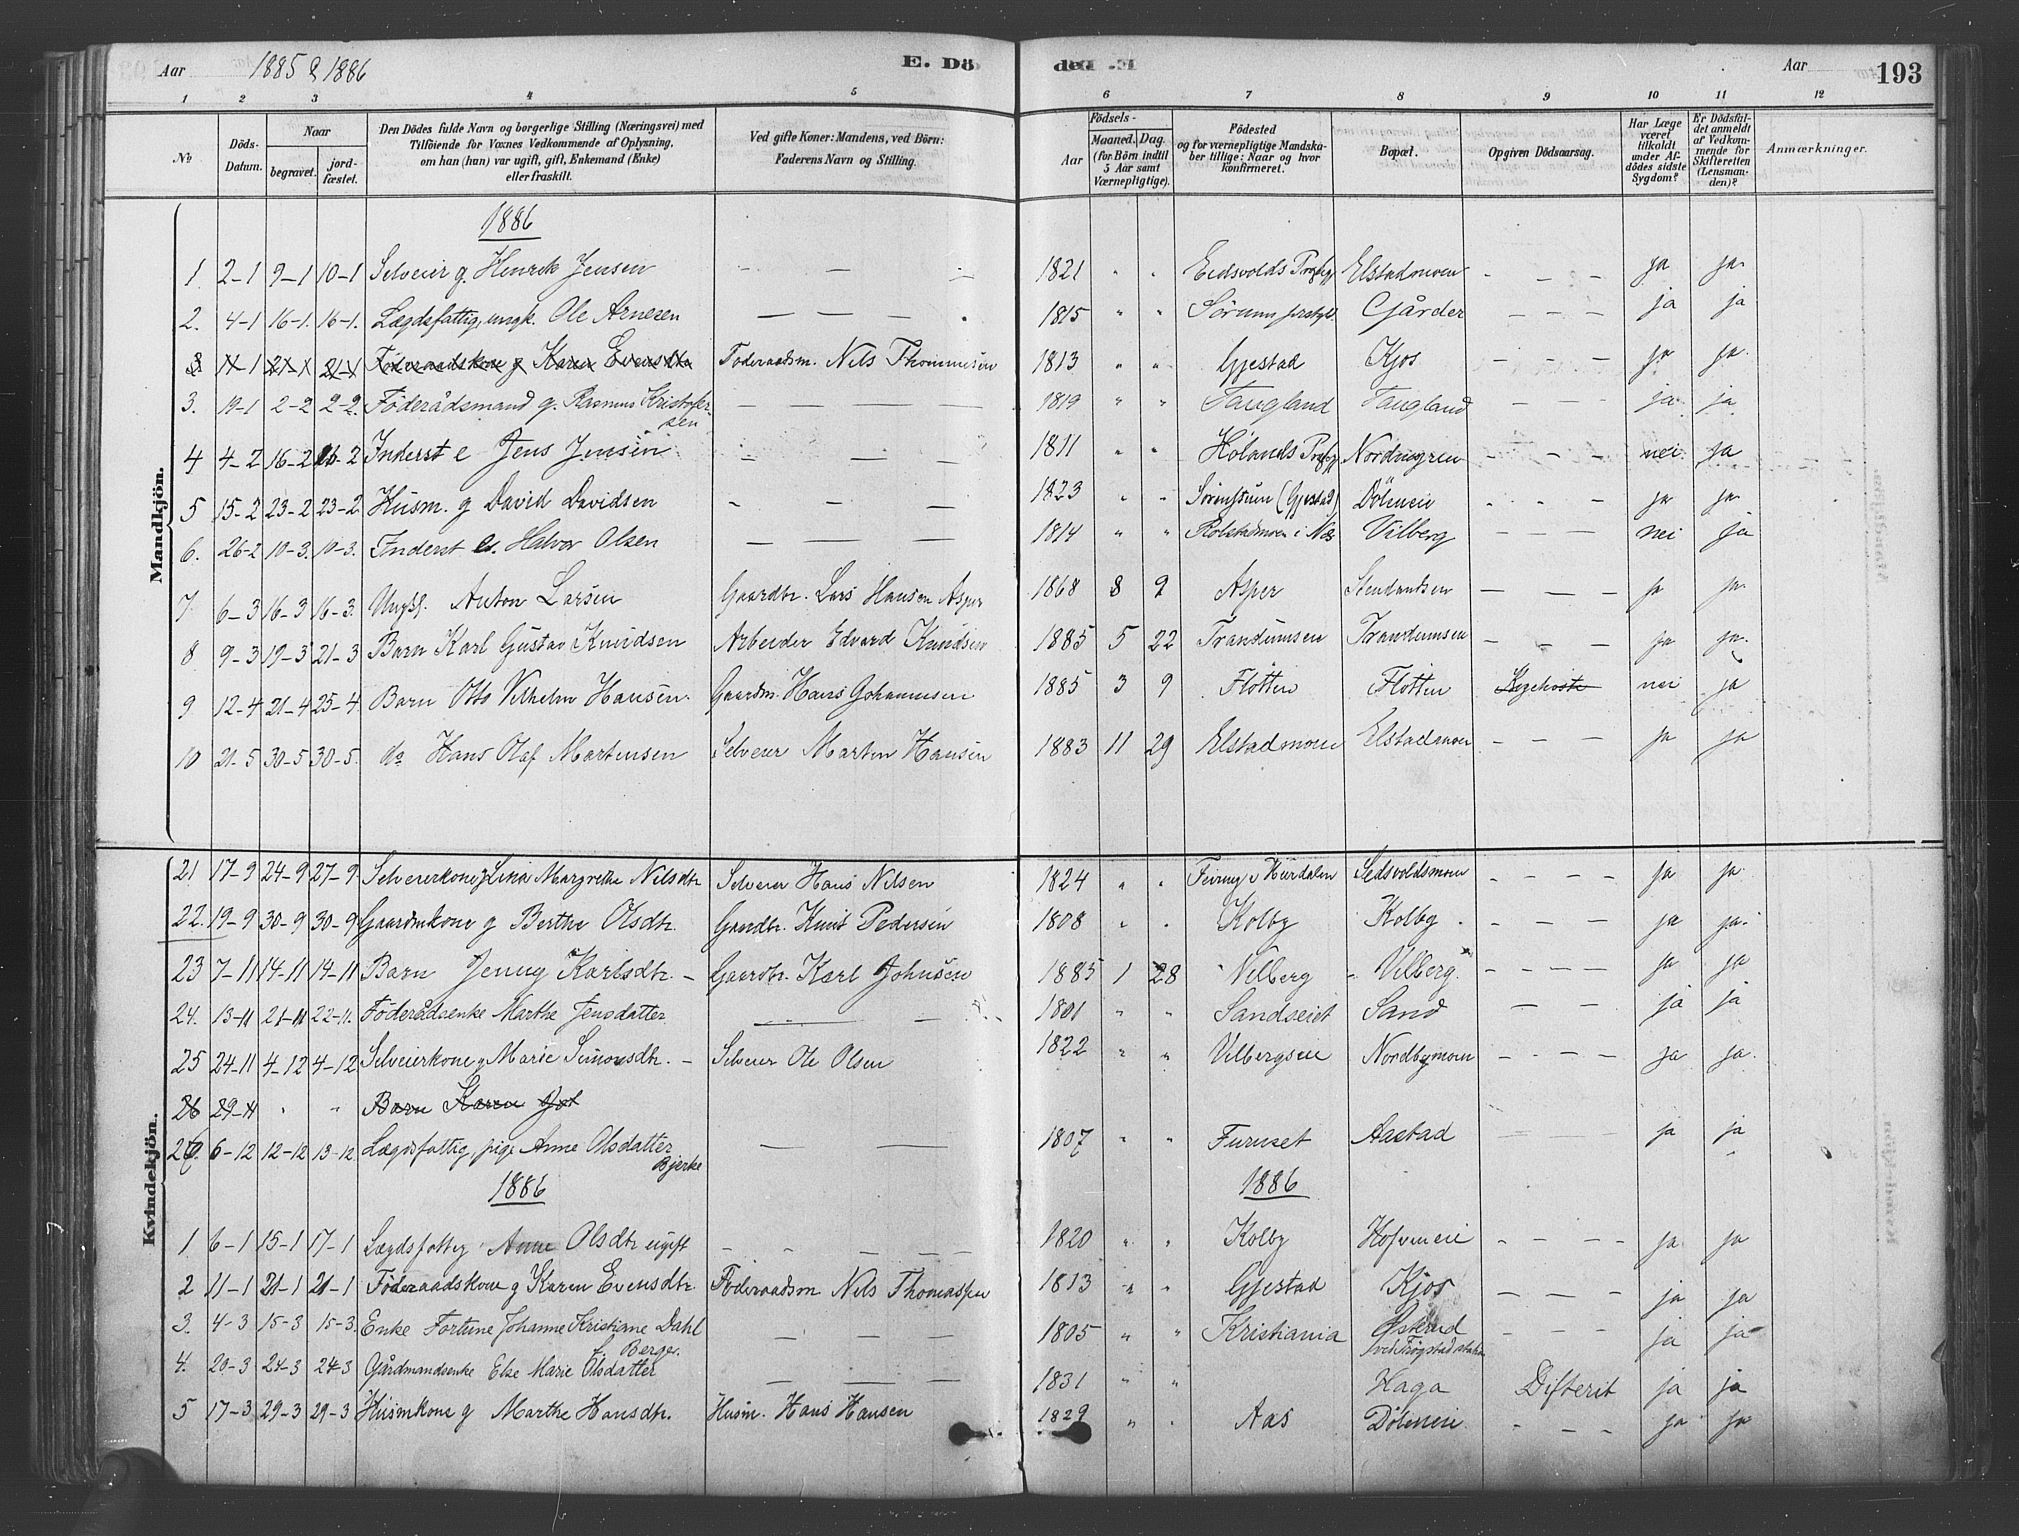 Aar 1885 & 1886 E. Dö den. E Aar 193
1 2 3 4 5 6 7 8 9 10 11 12
No Döds-Datum. Naar begravet. jordfæstet. Den Dödes fulde Navn og borgerlige Stilling (Næringsvei) med Tilföiende for Voxnes Vedkommende af Oplysning, om han (hun) var ugift, gift, Enkemand (Enke) eller fraskilt. Ved gifte Koner: Mandens, ved Börn: Faderens Navn og Stilling. Födsels- Aar Maaned. Dag. (for Börn indtil 5 Aar samt Værnepligtige). Födested og for værnepligtige Mandskaber tillige: Naar og hvor konfirmeret. Bopæl. Opgiven Dödsaarsag. Har Læge været tilkaldt under Afdödes sidste Sygdom? Er Dödsfaldet anmeldt af Vedkommende for Skifteretten (Lensmanden)? Anmærkninger.
Mandkjön.
1886
1. 2-1 9-1 10-1 Selveier g. Henrik Jensen — — — 1821 " " Eidsvolds Prgj Elstadmoen - - - ja ja
2. 4-1 16-1. 16-1. Lægdsfattig, ungk. Ole Arnesen — — — 1815 " " Sørum prstgj. Gjårder - - - ja ja
3 11-1 21-1 21-1 Føderaadskone g Karen Evensdtr Føderaadsm. Nils Thommesen 1813 " " Gjestad Kjos - - - ja ja
3. 19-1 2-2 2-2. Föderådsmand g. Rasmus Kristofersen — — — 1819 " " Taugland Taugland - - - ja ja
4 4-2 16-2 16-2 Inderst e Jens Jensen - — — 1811 " " Hølands Prgj - - - nei ja
5 15-2 23-2 23-2 Husm. g David Davidsen - — — 1823 " " (Gjestad) Dölineie - - - ja ja
6. 26-2 10-3. 10-3. Inderst e. Halvor Olsen — — — 1814 " " Rolstadmoen i Næs Vilberg — — — nei ja
7. 6-3 16-3 16-3. Ungk. Anton Larsen Gaardbr. Lars Hansen Asper 1868 8 9 Asper — — — ja ja
8 9-3 19-3 21-3 Barn Karl Gustav Knudsen Arbeider Edvard Knudsen 1885 5 22 Trandumseie Trandumseie - - - ja ja
9 12-4 21-4 25-4 Barn Otto Vilhelm Hansen Gaardm. Hans Johannesen 1885 3 9 Flötten Flötten Kighoste nei ja
10 21-5 30-5 30-5. do Hans Olaf Martensen Selveier Marten Hansen 1883 11 29 Elstadmoen Elstadmoen - - - ja ja
Kvindekjön.
21 17-9 24-9 27-9 Selveierkone g Lina Margrethe Nilsdtr Selveier Hans Nilsen 1824 " " Feiring i Hurdalen - - - - ja ja
22. 19-9 30-9 30-9 Gaardmkone g Berthe Olsdtr. Gaardbr. Knut Pedersen 1808 " " Kolby Kolby - - - ja ja
23 7-11 14-11 14-11 Barn Jenny Karlsdtr. - Gaardbr. Karl Johnsen 1885 1 28 Vilberg Vilberg - - - - ja ja
24. 13-11 21-11 22-11. Föderådsenke Marthe Jensdatter. — — 1801 " " Sandseiet Sand — — ja ja
25 24-11 4-12 4-12 Selveierkone g Marie Simonsdtr. - Selveier Ole Olsen 1822 " " Vilbergseie Nordbymoen - - - - ja ja
26 29-11 " " Barn Karen
26. 6-12 12-12 13-12 Lægdsfattig, pige Anne Olsdatter Bjerke — — 1807 " " Furuset Aastad - - - ja ja
1886 1886
1. 6-1 15-1 17-1 Lægdsfattig Anne Olsdtr ugift - - — — 1820 " " Kolby Hofsineie - - - - ja ja
2 11-1 21-1 21-1 Føderaadskone g Karen Evensdtr. Føderaadsm Nils Thomassen 1813 " " Gjestad Kjos — — — ja ja
3. 4-3 15-3 15-3. Enke Fortune Johanne Kristiane Dahl f. Berger. — — — 1805 " " Kristiania Østerud ved Frogstad - - - - ja ja
4. 20-3 24-3 24-3 Gårdmandsenke Else Marie Olsdatter — — — 1831 " " Haga Difterit ja ja
5 17-3 29-3 29-3 Husmkone g Marthe Hansdtr. Husm. Hans Hansen 1829 " " Aas Dölineie - - - ja ja